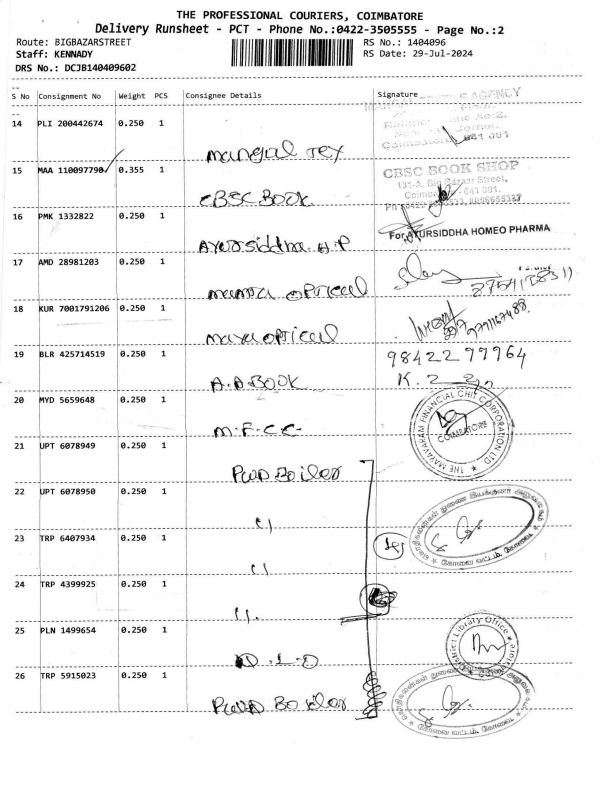 THE PROFESSIONAL COURIERS, COIMBATORE
Delivery Runsheet - PCT - Phone No.:0422-3505555 - Page No.:2
Route: BIGBAZARSTREET
RS No.: 1404096
Staff: KENNADY
RS Date: 29-Jul-2024
DRS No.: DCJB140409602
S No Consignment No Weight PCS Consignee Details Signature
14 PLI 200442674 0.250 1
AGENCY
641 001
Mangal Tex
15 MAA 110097790 0.355 1
CBSC BOOK SHOP
131-A, Big Bazaar Street,
641 001.
CBSC BOOK
16 PMK 1332822 0.250 1
For AYURSIDDHA HOMEO PHARMA
Ayursiddha H.P
17 AMD 28981203 0.250 1
OPTICAL
18 KUR 7001791206 0.250 1
Maya OPTICAL
19 BLR 425714519 0.250 1
98422 77964
A.A BOOK
20 MYD 5659648 0.250 1
THE MAYAVARAM FINANCIAL CHIT CORPORATION LTD
COIMBATORE
M.F.C.C.
21 UPT 6078949 0.250 1
PWD Boiler
22 UPT 6078950 0.250 1
23 TRP 6407934 0.250 1
24 TRP 4399925 0.250 1
25 PLN 1499654 0.250 1
District Library Office
D.L.O
26 TRP 5915023 0.250 1
PWD Boiler